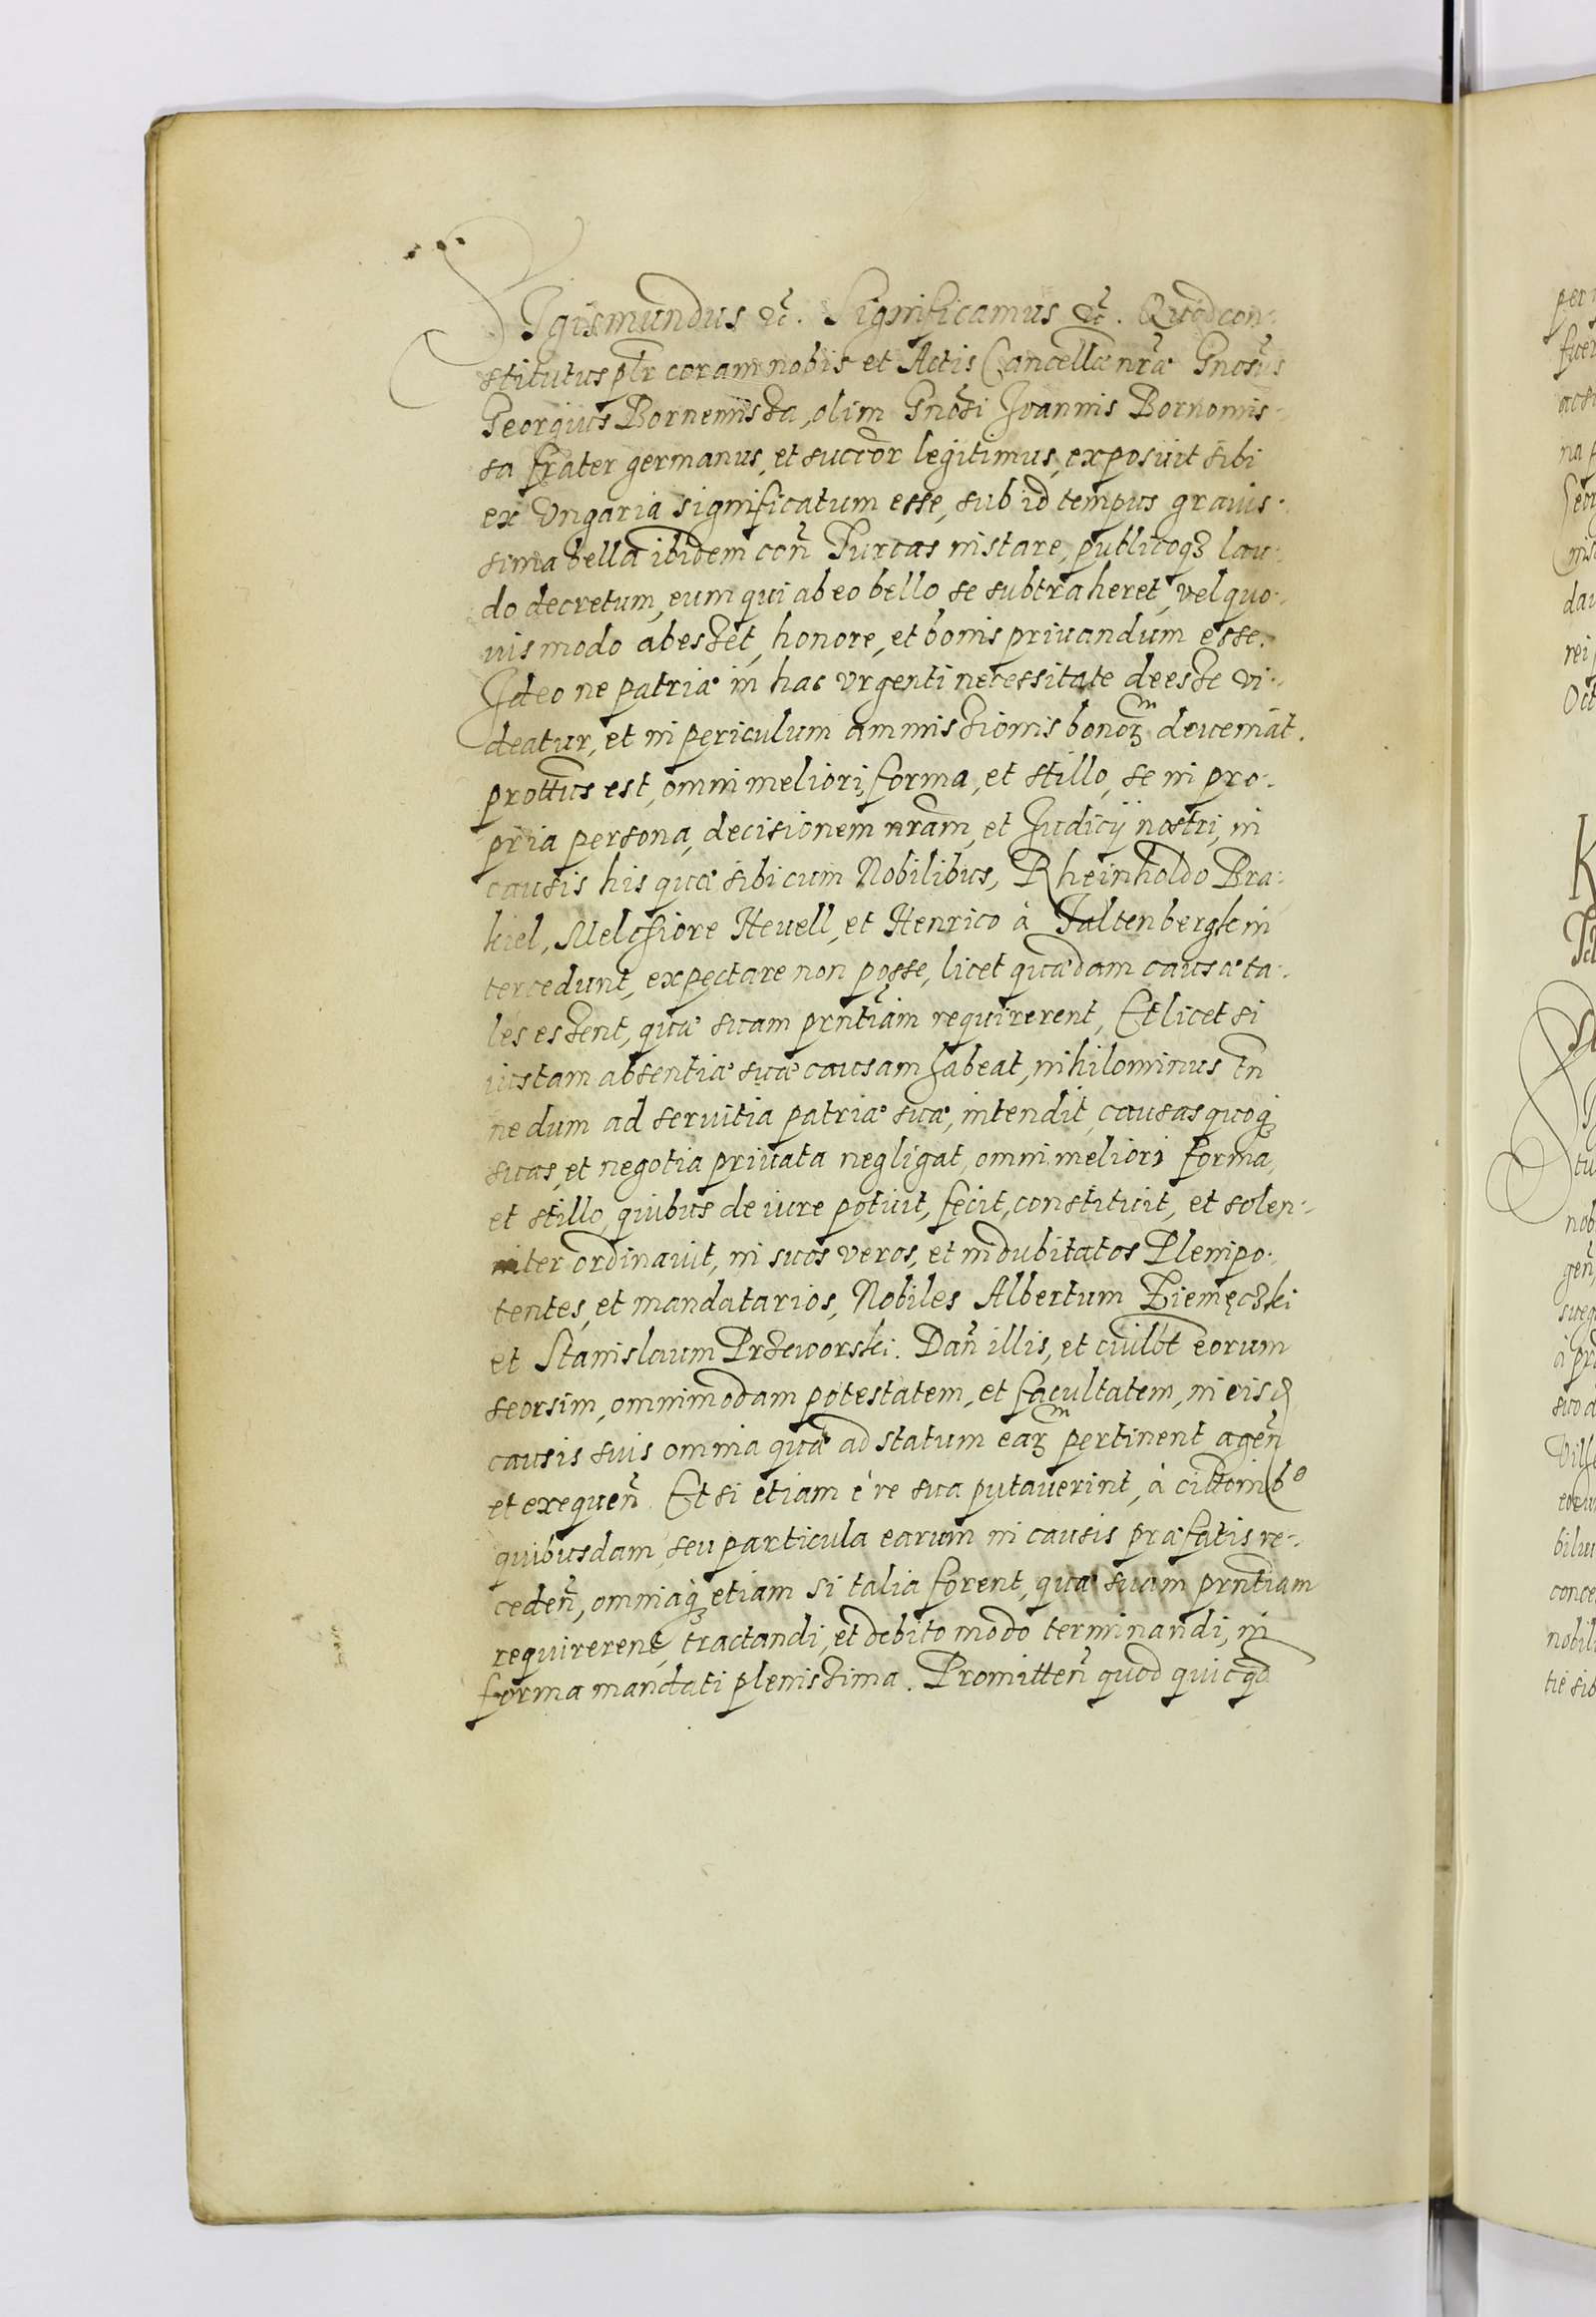 SIgismundus etc. Significamus etc. Quod con-
stitutus plr coram nobis et Actis Cancellæ nræ Gnosus
Georgius Bornemissa, olim Gnosi Joannis Bornomis-
sa frater germanus, et succor legitimus, exposuit sibi
ex Ungaria significatum esse, sub id tempus grauis-
sima bella ibidem con Turcas instare, publicoqz lau-
do decretum, eum qui ab eo bello se subtraheret, vel quo-
uis modo abesset, honore, et bonis priuandum esse.
Ideo ne patriæ in hac vrgenti necessitate deesse vi-
deatur, et in periculum ammissionis bonoꝝ deueniat.
prottus est, omni meliori forma, et stillo, se in pro-
pria persona, decisionem nram, et Judicij nostri, in
causis his quæ sibi cum Nobilibus, Rheinholdo Bra-
kiel, Melchiore Heuell, et Henrico à Taltenbergk in
tercedunt, expectare non posse, licet quædam causæ ta-
les essent, quæ suam prntiam requirerent, Et licet si
iustam absentiæ suæ causam habeat, nihilominus tn
ne dum ad seruitia patriæ suæ, intendit, causas quoqz
suas, et negotia priuata negligat, omni meliori forma,
et stillo, quibus de iure potuit, fecit, constituit, et solen-
niter ordinauit, in suos veros, et indubitatos Plenipo-
tentes, et mandatarios, Nobiles Albertum Ziemęczki
et Stanislaum Przeworski. Dan illis, et cuilbt eorum
seorsim, omnimodam potestatem, et facultatem, in eisd
causis suis omnia quæ ad statum eaꝝ pertinent agen
et exequen. Et si etiam è re sua putauerint, à cittoinbo
quibusdam, seu particula earum in causis præfatis re-
ceden, omniaqz etiam si talia forent, quæ suam prntiam
requirerent, tractandi, et debito modo terminandi, in
forma mandati plenissima. Promitten quod quicqd